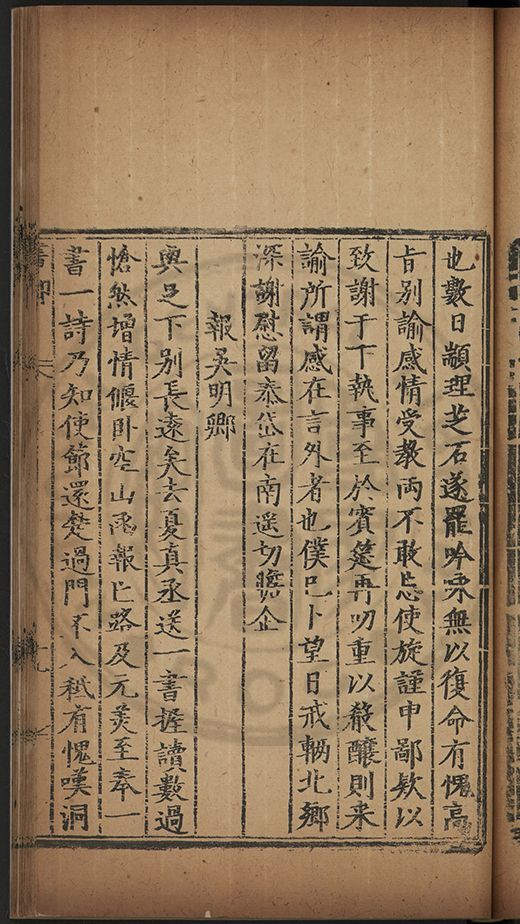 也數日顓理芝石遂罷吟哢無以復命有愧高
旨別諭感情受教両不敢忘使旋謹申鄙欵以
致謝于下執事至於賓筵再叨重以殽醲則来
諭所謂感在言外者也僕已卜望日戒輈北鄉
深謝慰留泰岱在南遥切瞻企
報吳明卿
與足下別長遠矣去夏真丞送一書握讀數過
愴然增情偃卧空山啚報亡路及元羙至奉一
書一詩乃知使節還楚過門不入秪有愧嘆洞